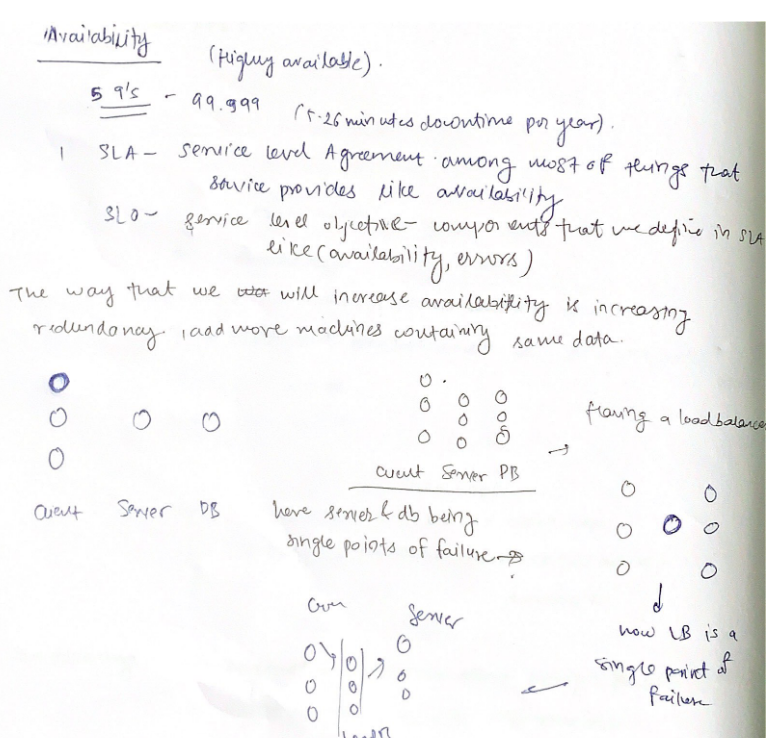 Availability
(Highly available).
5 9's - 99.999 (5.26 minutes downtime per year).
1 SLA - Service level Agreement. among most of things that
service provides like availability
SLO - service level objective - components that we define in SLA
like (availability, errors)
The way that we will increase availability is increasing
redundancy, add more machines containing same data.
client Server DB
client Server DB
here server & db being
single points of failure
Having a load balancer
now LB is a
single point of
failure
Server